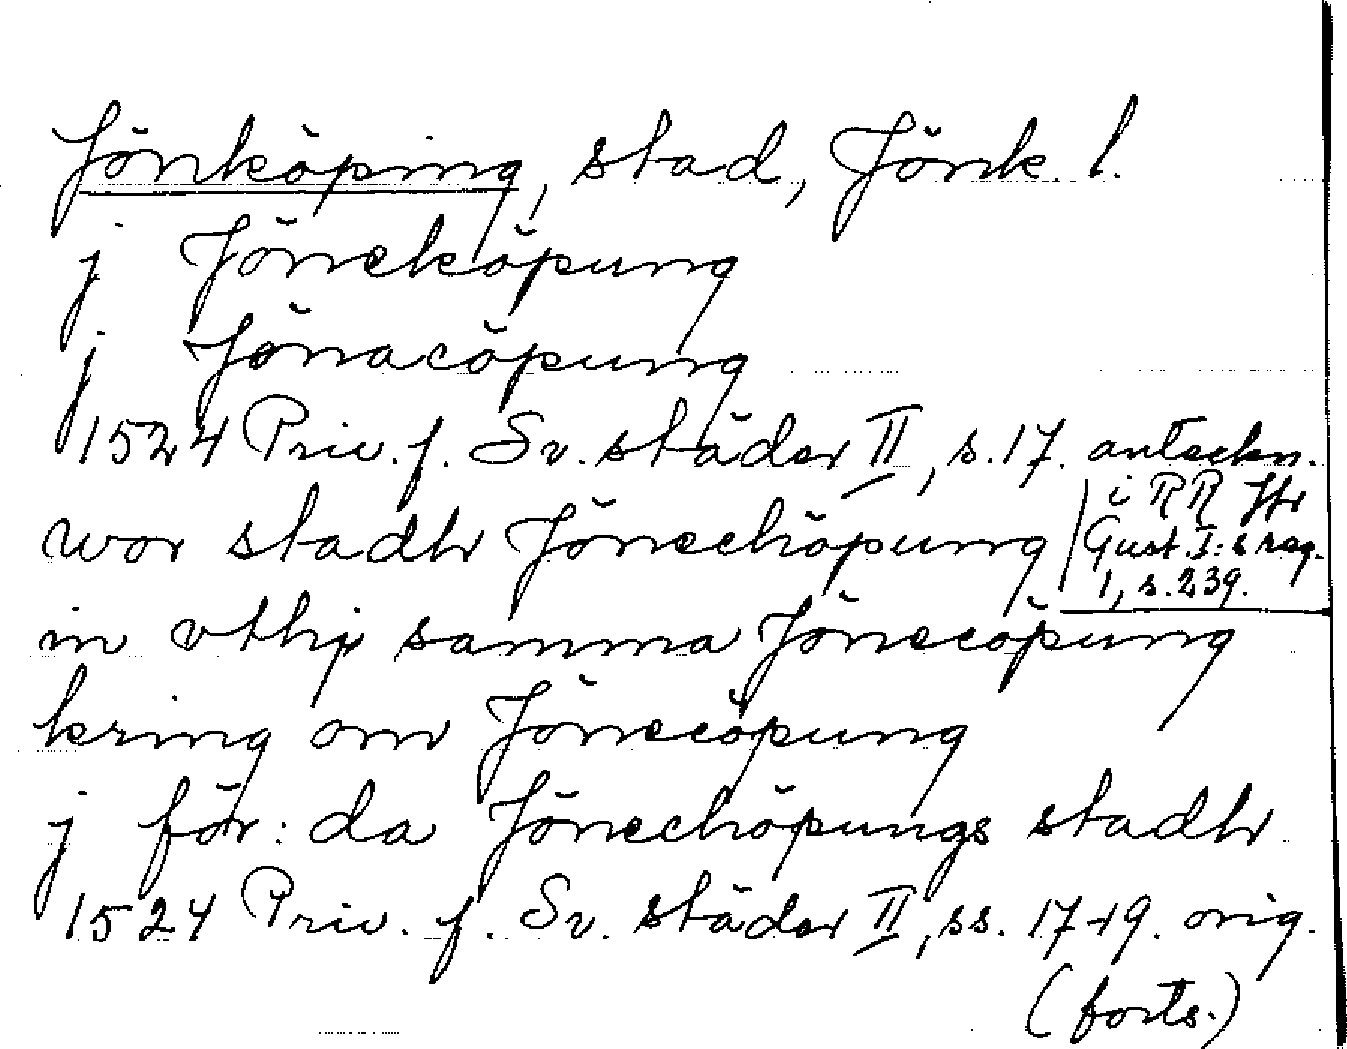 Jönköping, stad, Jönk. l.
j Jöneköpung
j Jönacöpung
1524 Priv. f. Sv. städer II, s. 17. anteckn.
i RR Jfr
Gust. I:s reg.
1, s. 239.
wor stadh Jönechöpung
in vthi samma Jönecöpung
kring om Jönecöpung
j för: da Jönechöpungs stadh
1524 Priv. f. Sv. städer II, ss. 17-19. orig.
(forts.)